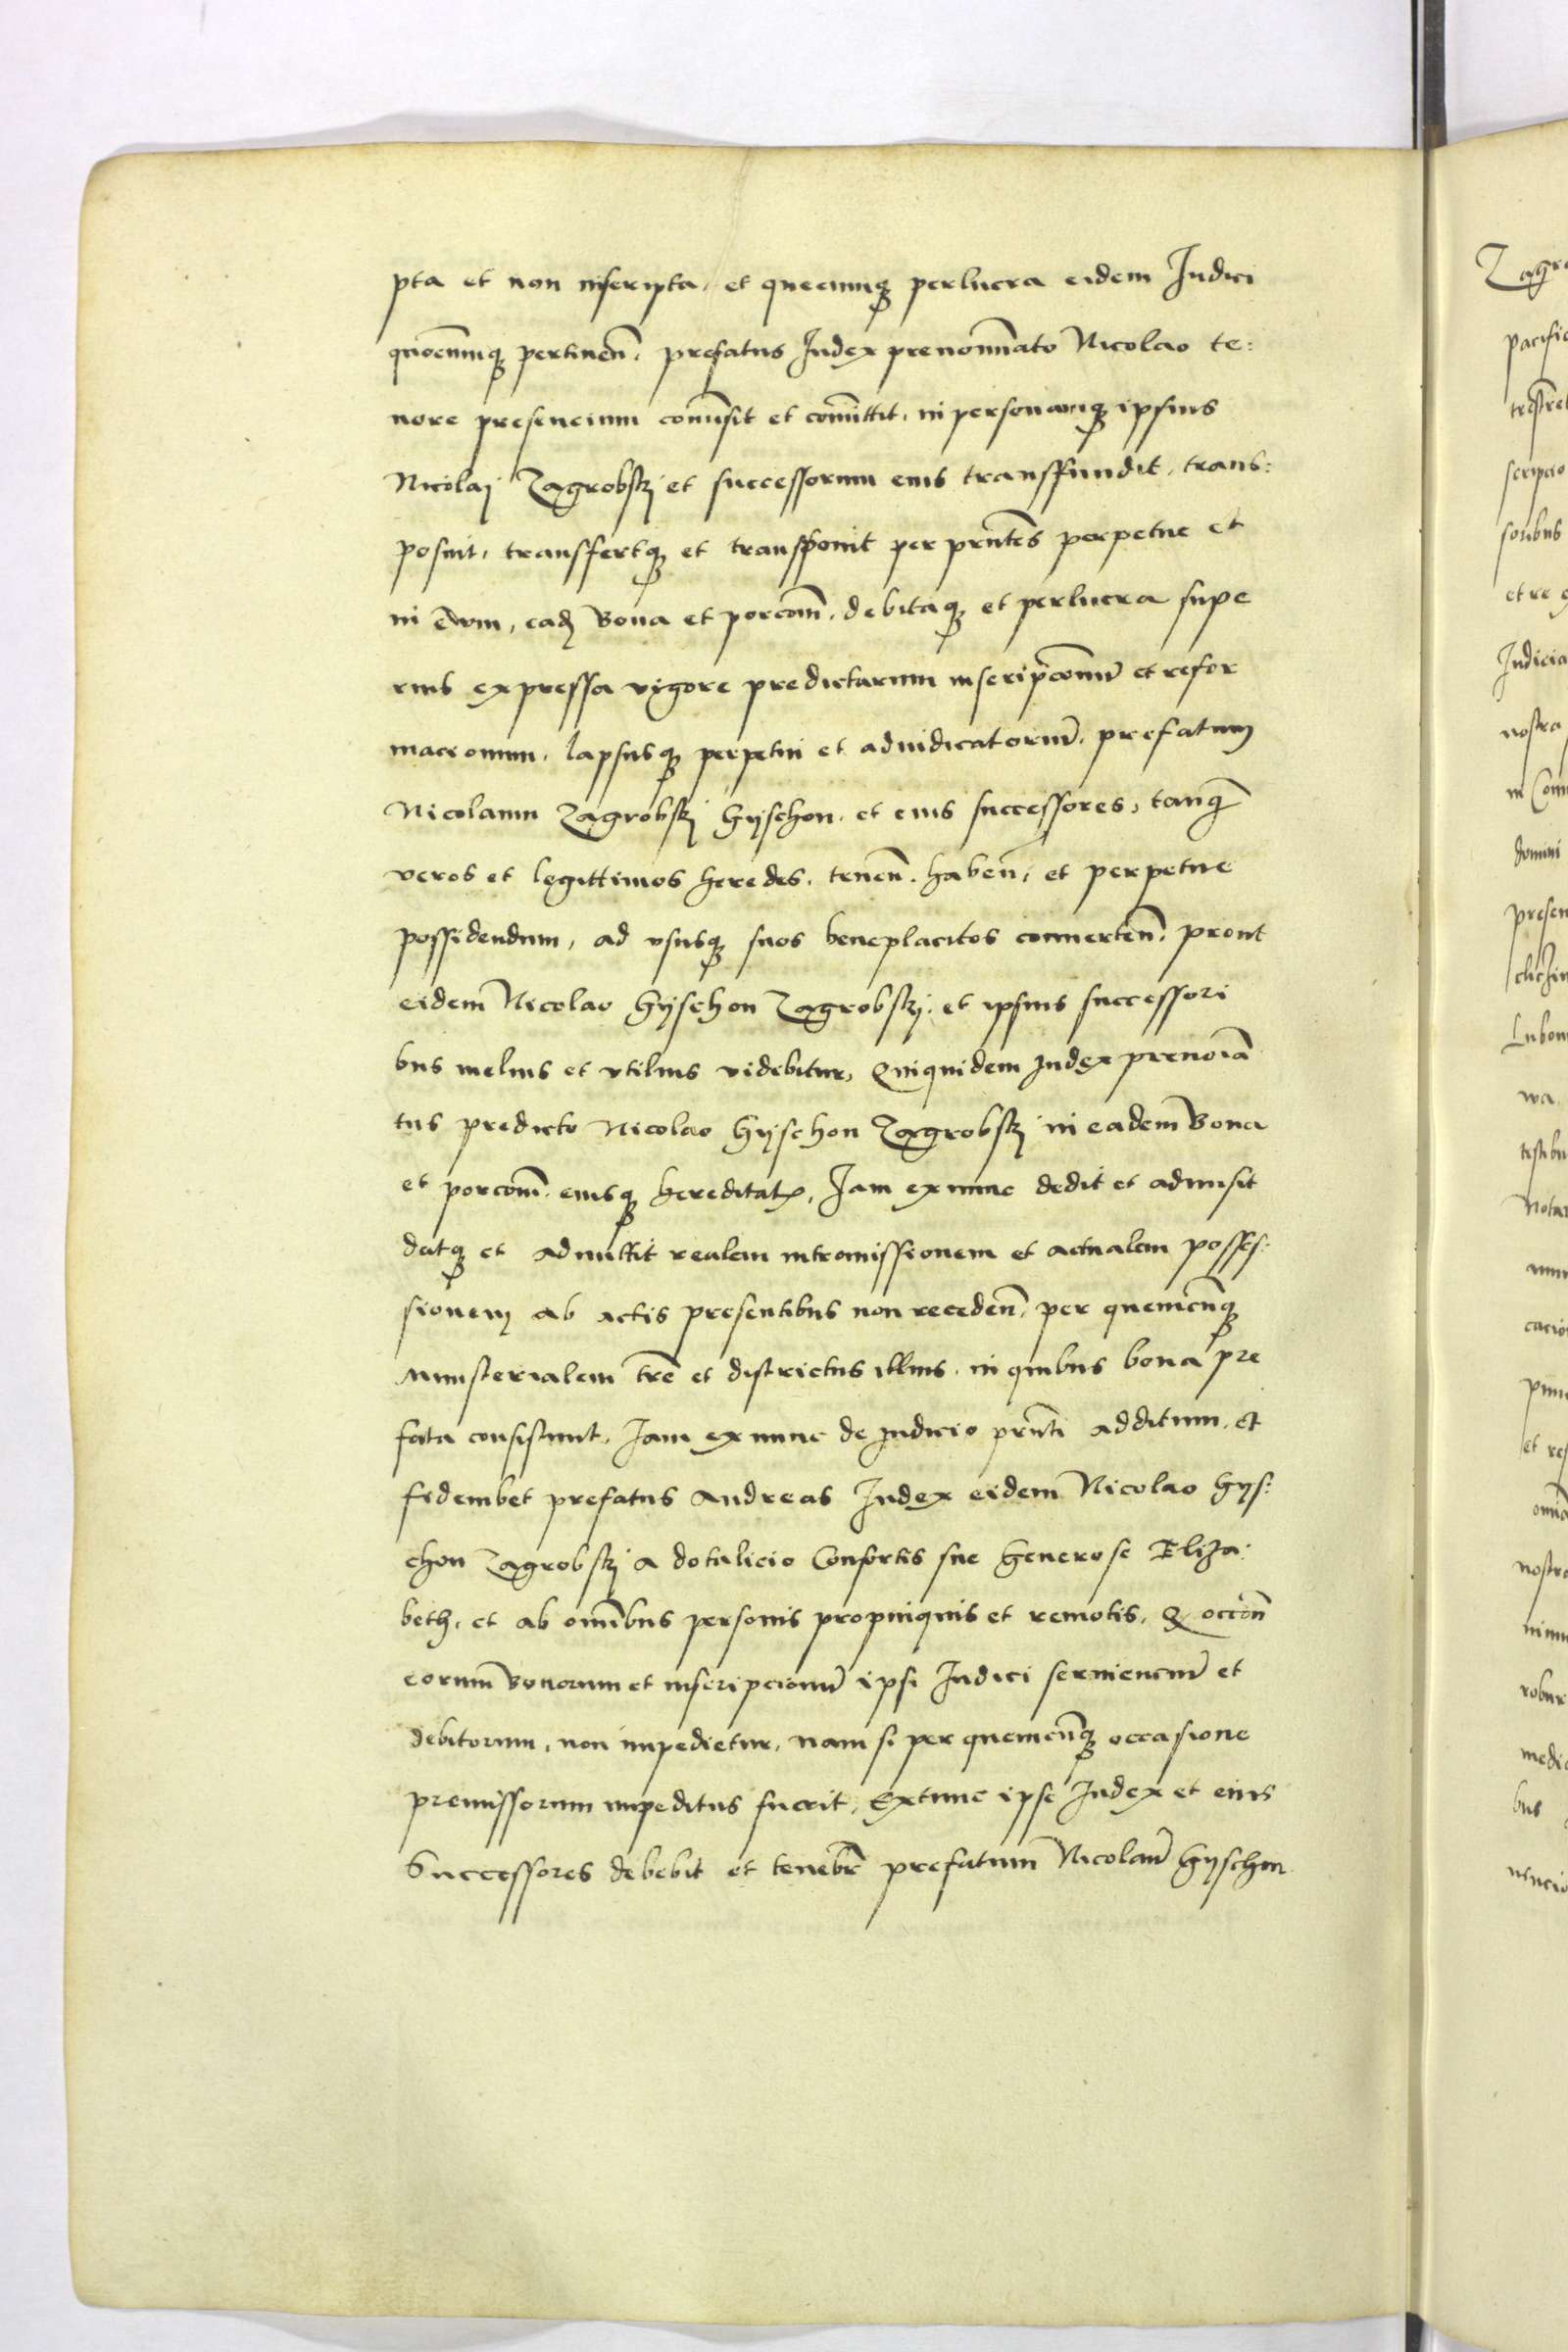 pta et non inscripta, et quecumq perlucra eidem Judici
quocumq pertineñ. prefatus Judex prenominato Nicolao te:
nore presencium commisit et committit, in personamq ipsius
Nicolai Zagrobskj et successorum eius transffundit, trans:
posuit, transfertq et transponit per pntes perpetue et
in euum, eadem Bona et porcom̄, debitaq et perlucra supe
rius expressa vigore predictarum inscripcionum et refor
macionum, lapsusq perpetui et adiudicatorum, prefatum
Nicolaum Zagrobskj Hijschon, et eius successores, tanq̄
veros et legittimos heredes, tenen̄. haben̄, et perpetue
possidendum, ad vsusq suos beneplacitos conuerten̄, prout
eidem Nicolao Hijschon Zagrobskj, et ipsius successori
bus melius et vtilius videbitur, Quiquidem Judex prenoīa
tus predicto Nicolao Hijschon Zagrobskj in eadem Bona
et porcom̄, eiusq hereditatem, Jam exnunc dedit et admisit
datq et admittit realem intromissionem et actualem posses:
sionem ab actis presentibus non receden̄, per quemcunq
ministerialem tr̄e et districtus illius, in quibus bona pre
fata consistunt, Jam exnunc de Judicio pn̄ti additum, et
fideiubet prefatus Andreas Judex eidem Nicolao Hijs:
chon Zagrobskj a dotalicio Consortis sue Generose Eliza:
beth, et ab omībus personis propinquis et remotis, Q occōn
eorum Bonorum et inscripcionum ipsi Judici seruiencium et
debitorum, non impedietur, nam si per quemcunq occasione
premissorum impeditus fuerit, Extunc ipse Judex et eius
Successores debebit et tenebr̄ prefatum Nicolaum Hijschon